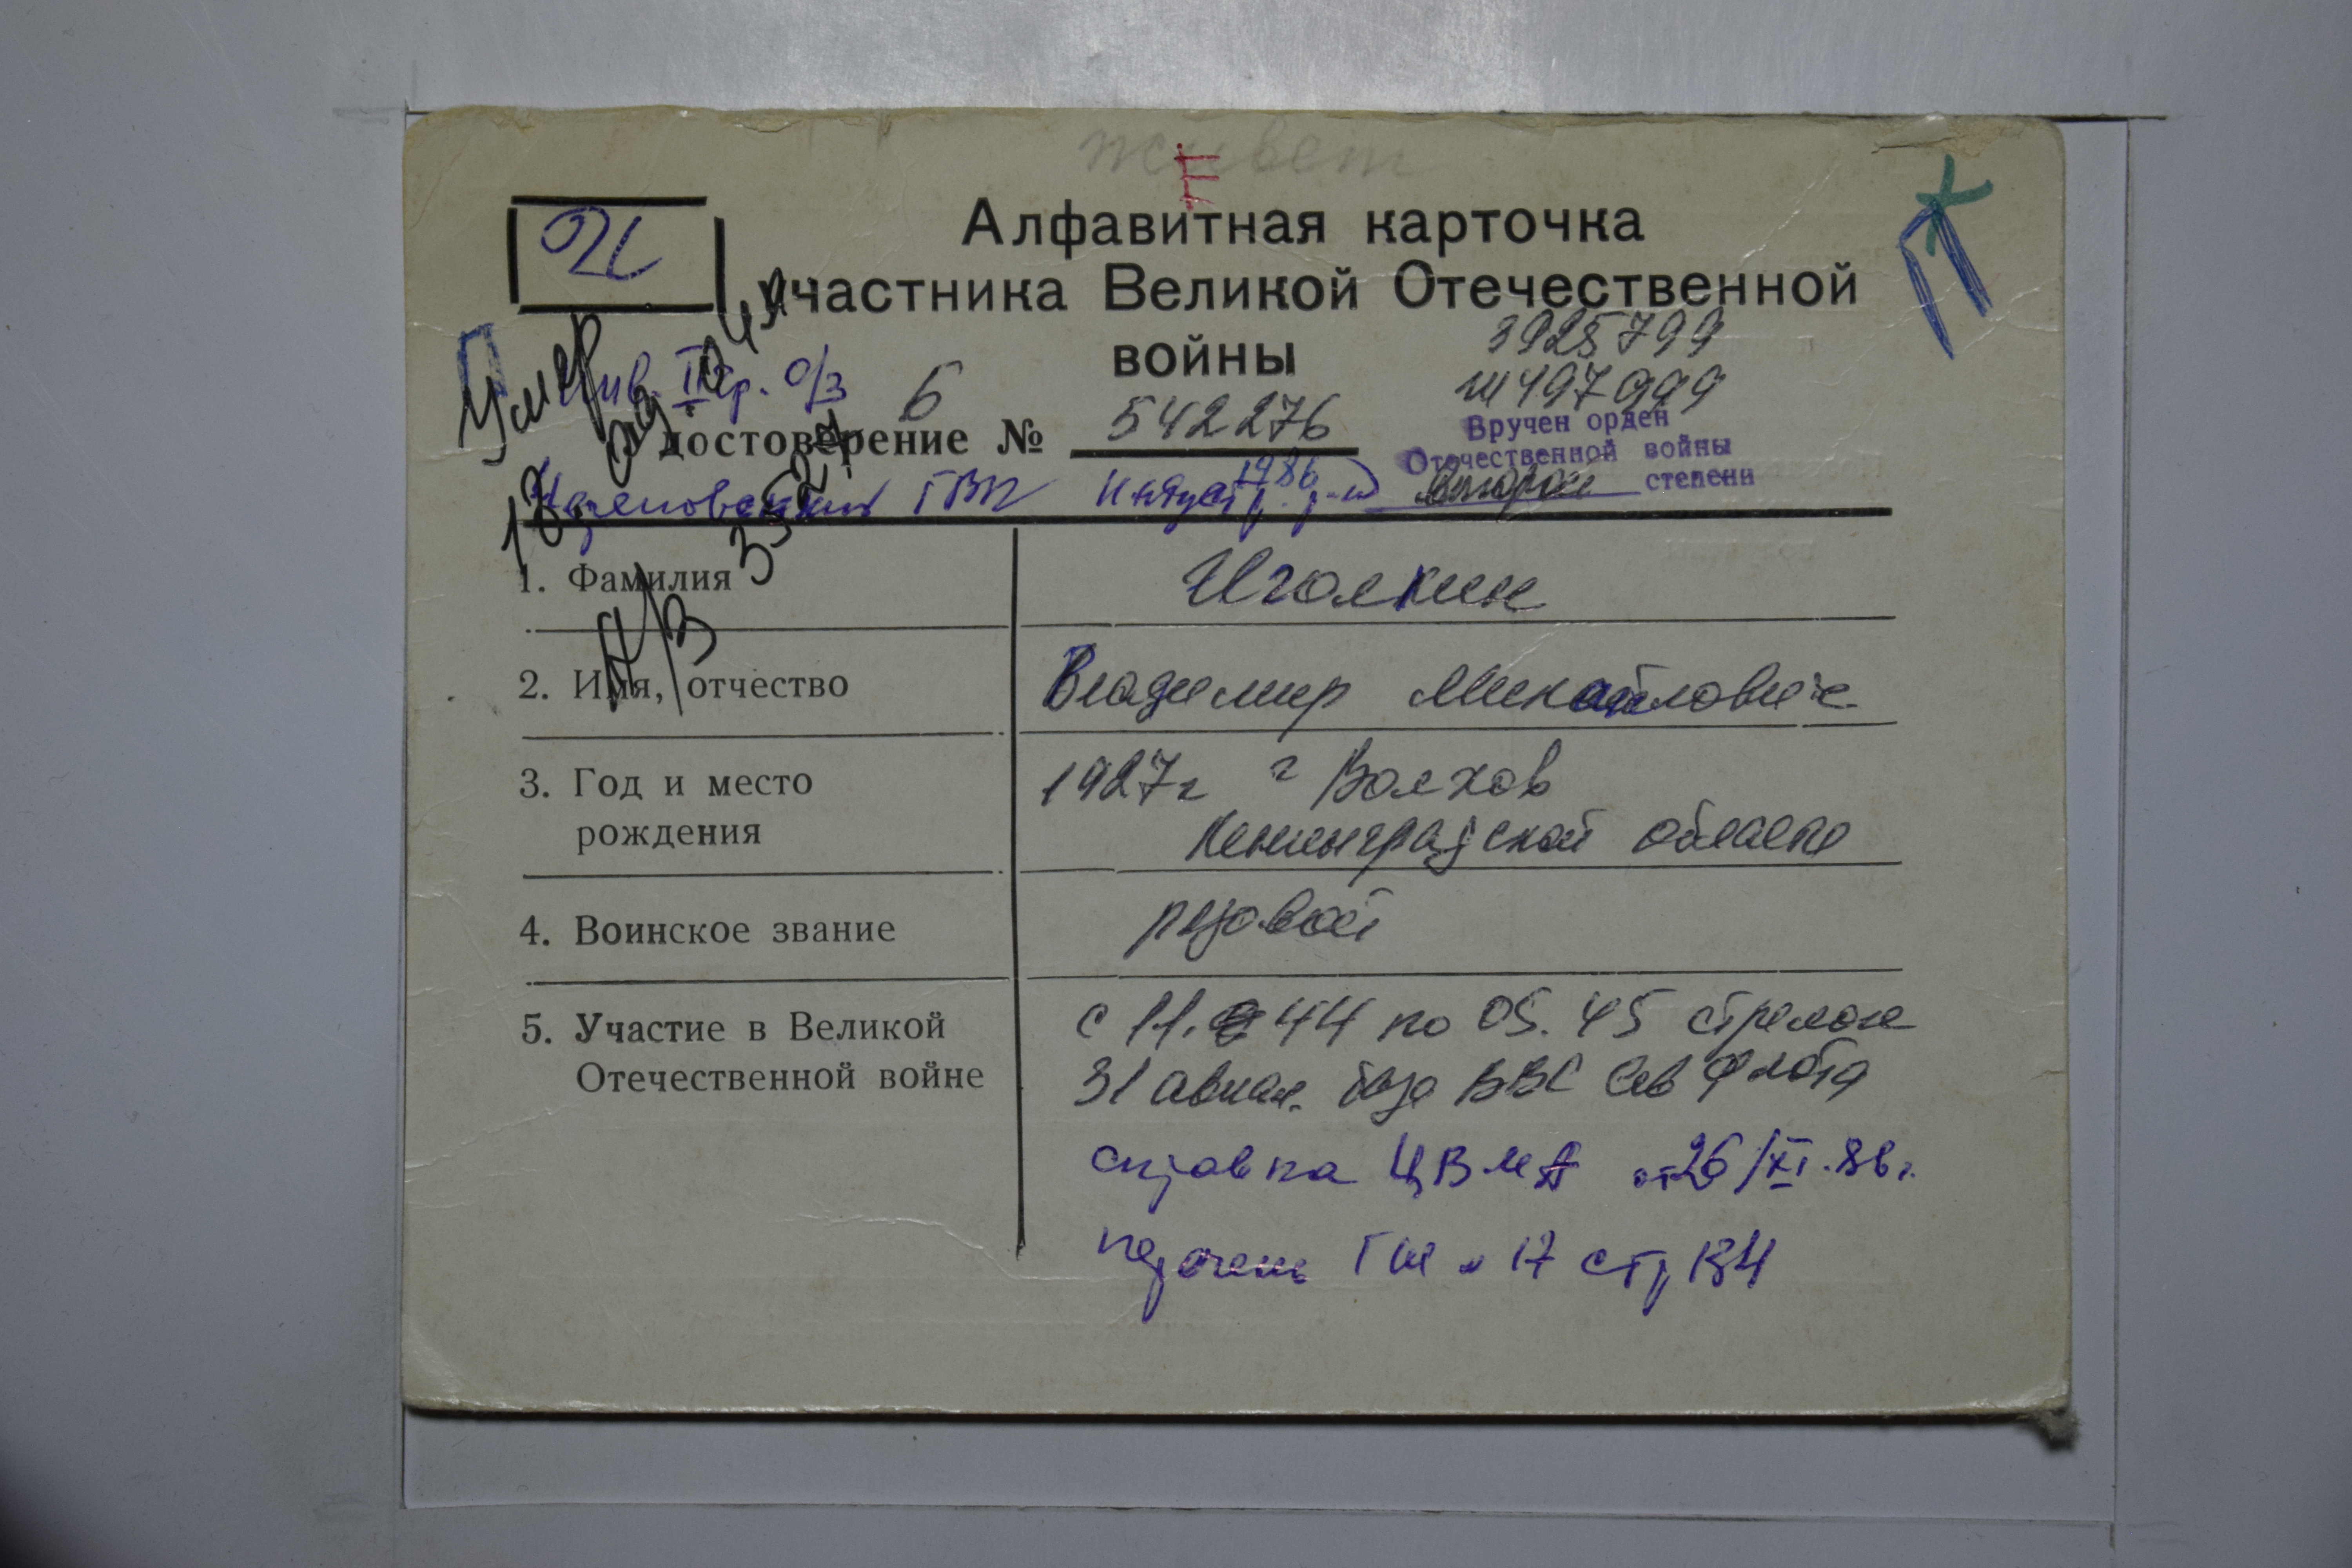 живет
Е
Алфавитная карточка
участника Великой Отечественной
войны
3925799
ш 497999
Умер
инв. II гр. о/з
Б
Удостоверение № 542276
Вручен орден
Отечественной войны
второй степени
ГВК Индустр. р-н
1986
1. Фамилия
Иголкин
2. Имя, отчество
Владимир Михайлович
3. Год и место
рождения
1927г г Волхов
Ленинградской области
4. Воинское звание
рядовой
5. Участие в Великой
Отечественной войне
с 11. 44 по 05. 45 стрелок
31 авиац. база ВВС Сев Флота
справка ЦВМА от 26/XI.86г.
перечень ГШ № 17 стр 134